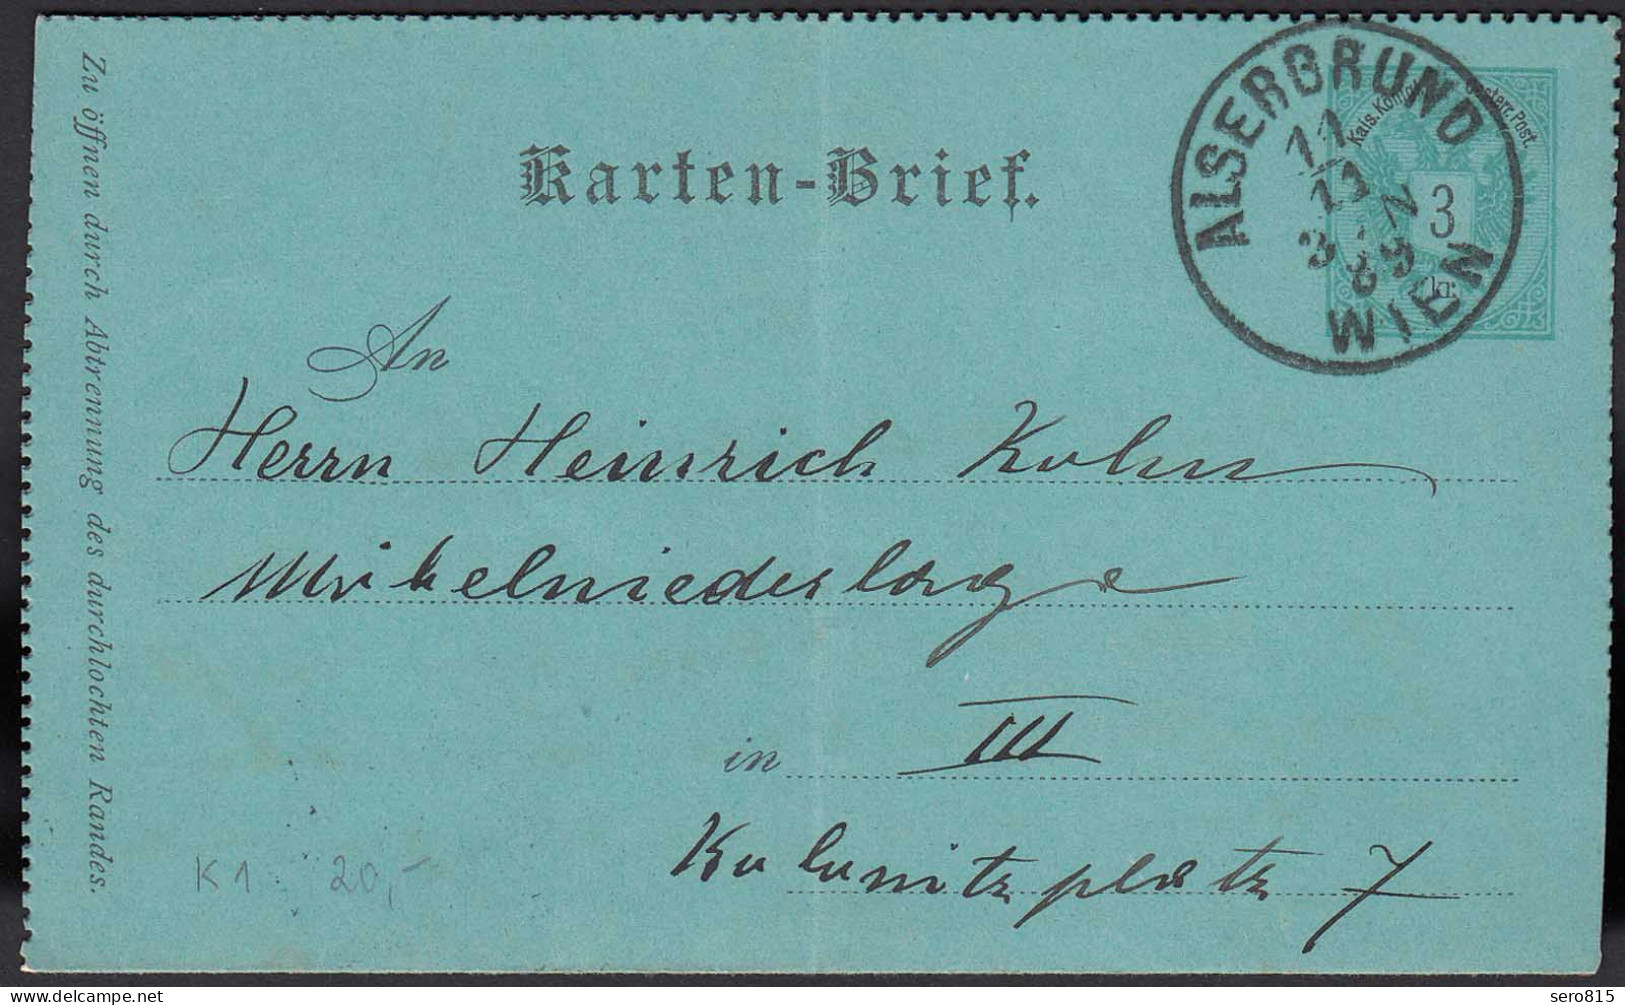 Zu öffnen durch Abtrennung des durchlochten Randes.
Karten-Brief.
ALSERGRUND
WIEN
11
11
3 N
89
Kais. Königl. Oesterr. Post.
3
kr.
An
Herrn Heinrich Kohn
Möbelniederlage
in III
Kolonitzplatz 7
K1 20,-
sero815